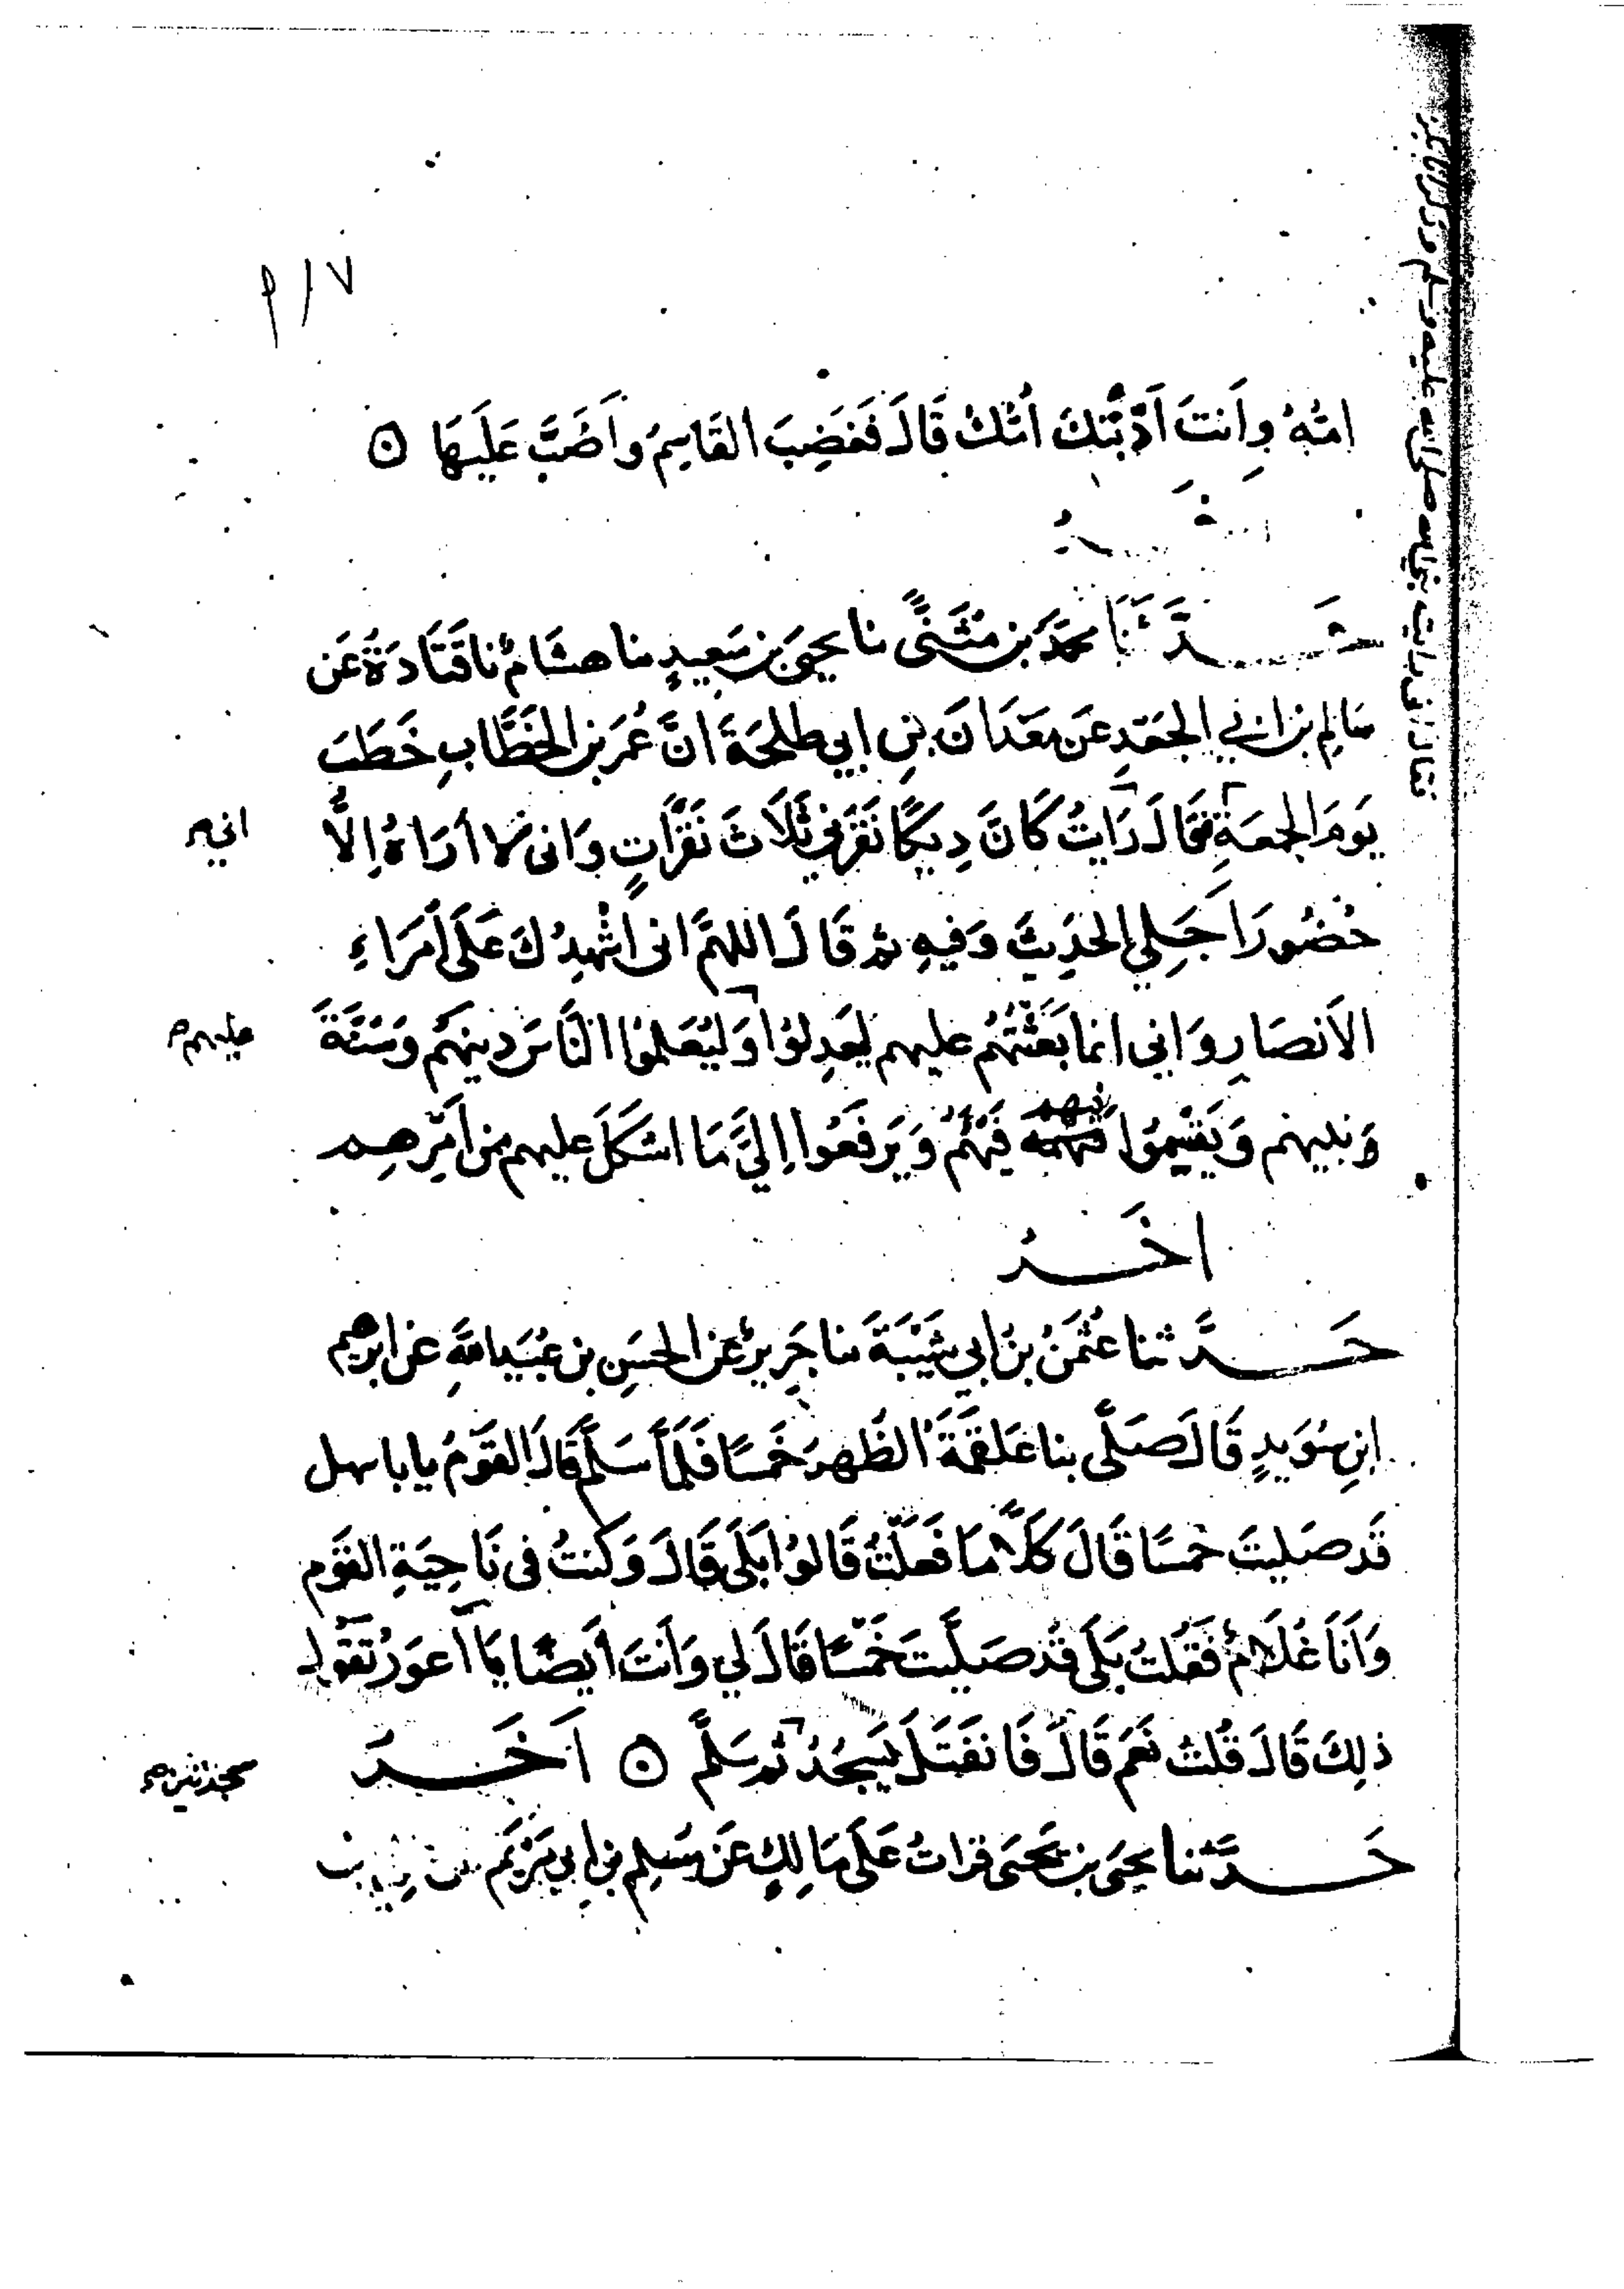 ٢١٧
اُمُّهُ وَاَنتَ اَدَّبَتكَ اُمُّكَ قَالَ فَغَضِبَ القَاسِمُ وَاَضَبَّ عَلَيهَا ٥
حَـــدَّثَنَا مُحَمَّدُ بن مُثَنَّىً نا يحيىَ بن سَعِيدٍ نا هشَامٌ نا قَتَادَةُ عَن
سَالِم بن ابي الجَعَدِ عَن مَعَدَانَ بنِ ابي طلحَةَ انَّ عُمَرَ بن الخَطَّابِ خَطَبَ
يَومَ الجمعَةِ فقَالَ رَايتُ كَانَّ دِيكًا نَقَرَني ثَلَاثَ نَقَرَاتٍ وَانى لا اُرَاهُ اِلَّا
اني
حُضُورَ اَجَلِي الحَدِيثَ وَفيهِ ثم قَالَ اللهمَّ انى اُشهِدُكَ عَلَى اُمَرَاءِ
الاَنصَارِ وَاني انما بَعَثتُهُم عليهم لِيَعدِلوُا وَليُعَلموُا النَّاسَ دينهَم وَسُنَّةَ
عليهم
وَنبيهم وَيَقسِموُا فيهم فَيئَهُم وَيَرفَعُوا اِليَّ مَا اشكَلَ عليهم من اَمرِهِم
اخَـــرُ
حَـــدَّثنا عُثمَنُ بنُ ابي شَيبَةَ نا جَرِيرٌ عَن الحسَنِ بن عُبَيدِ اللهِ عَن ابرهيم
ابنِ سُوَيدٍ قَالَ صَلَّى بنا عَلقَمَةُ الظُهرَ خَمسًا فَلمَّا سَلَّمَ قَالَ القَومُ يا با سهل
قَد صَليتَ خمسًا قَالَ كَلَّا مَا فَعَلتُ قَالوُا بَلَى قَالَ وَكنتُ فى نَاحِيَةِ القَوَم
وَاَنَا غُلَامٌ فَقُلتُ بَلَى قَد صَلَّيتَ خَمسًا قَالَ لي وَاَنتَ اَيضًا يَا اَعوَرُ تَقُولُ
ذلِكَ قَالَ قُلتُ نَعَم قَالَ فَانفَتَلَ يَسجُدُ ثم سَلَّمَ ٥ اَخَـــرُ
سجدتين
حَـــدَّثنا يحيَى بن يَحيَى قراتُ عَلَى مَالِكٍ عَن مُسلِم بن ابي مَريَم عن